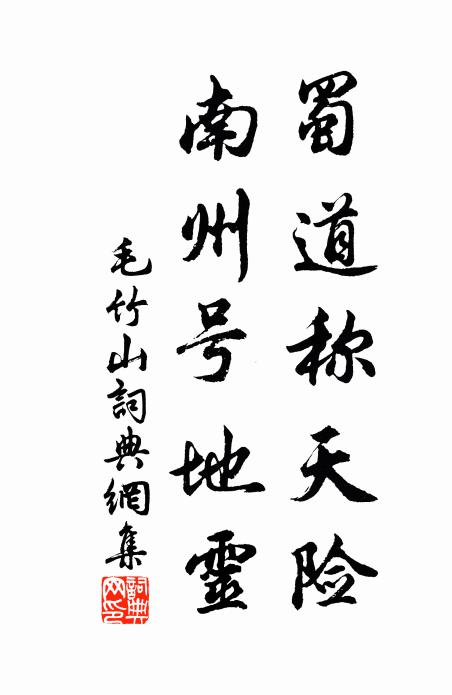 蜀道称天险
南州号地靈
毛竹山詞典網集
詞典网印